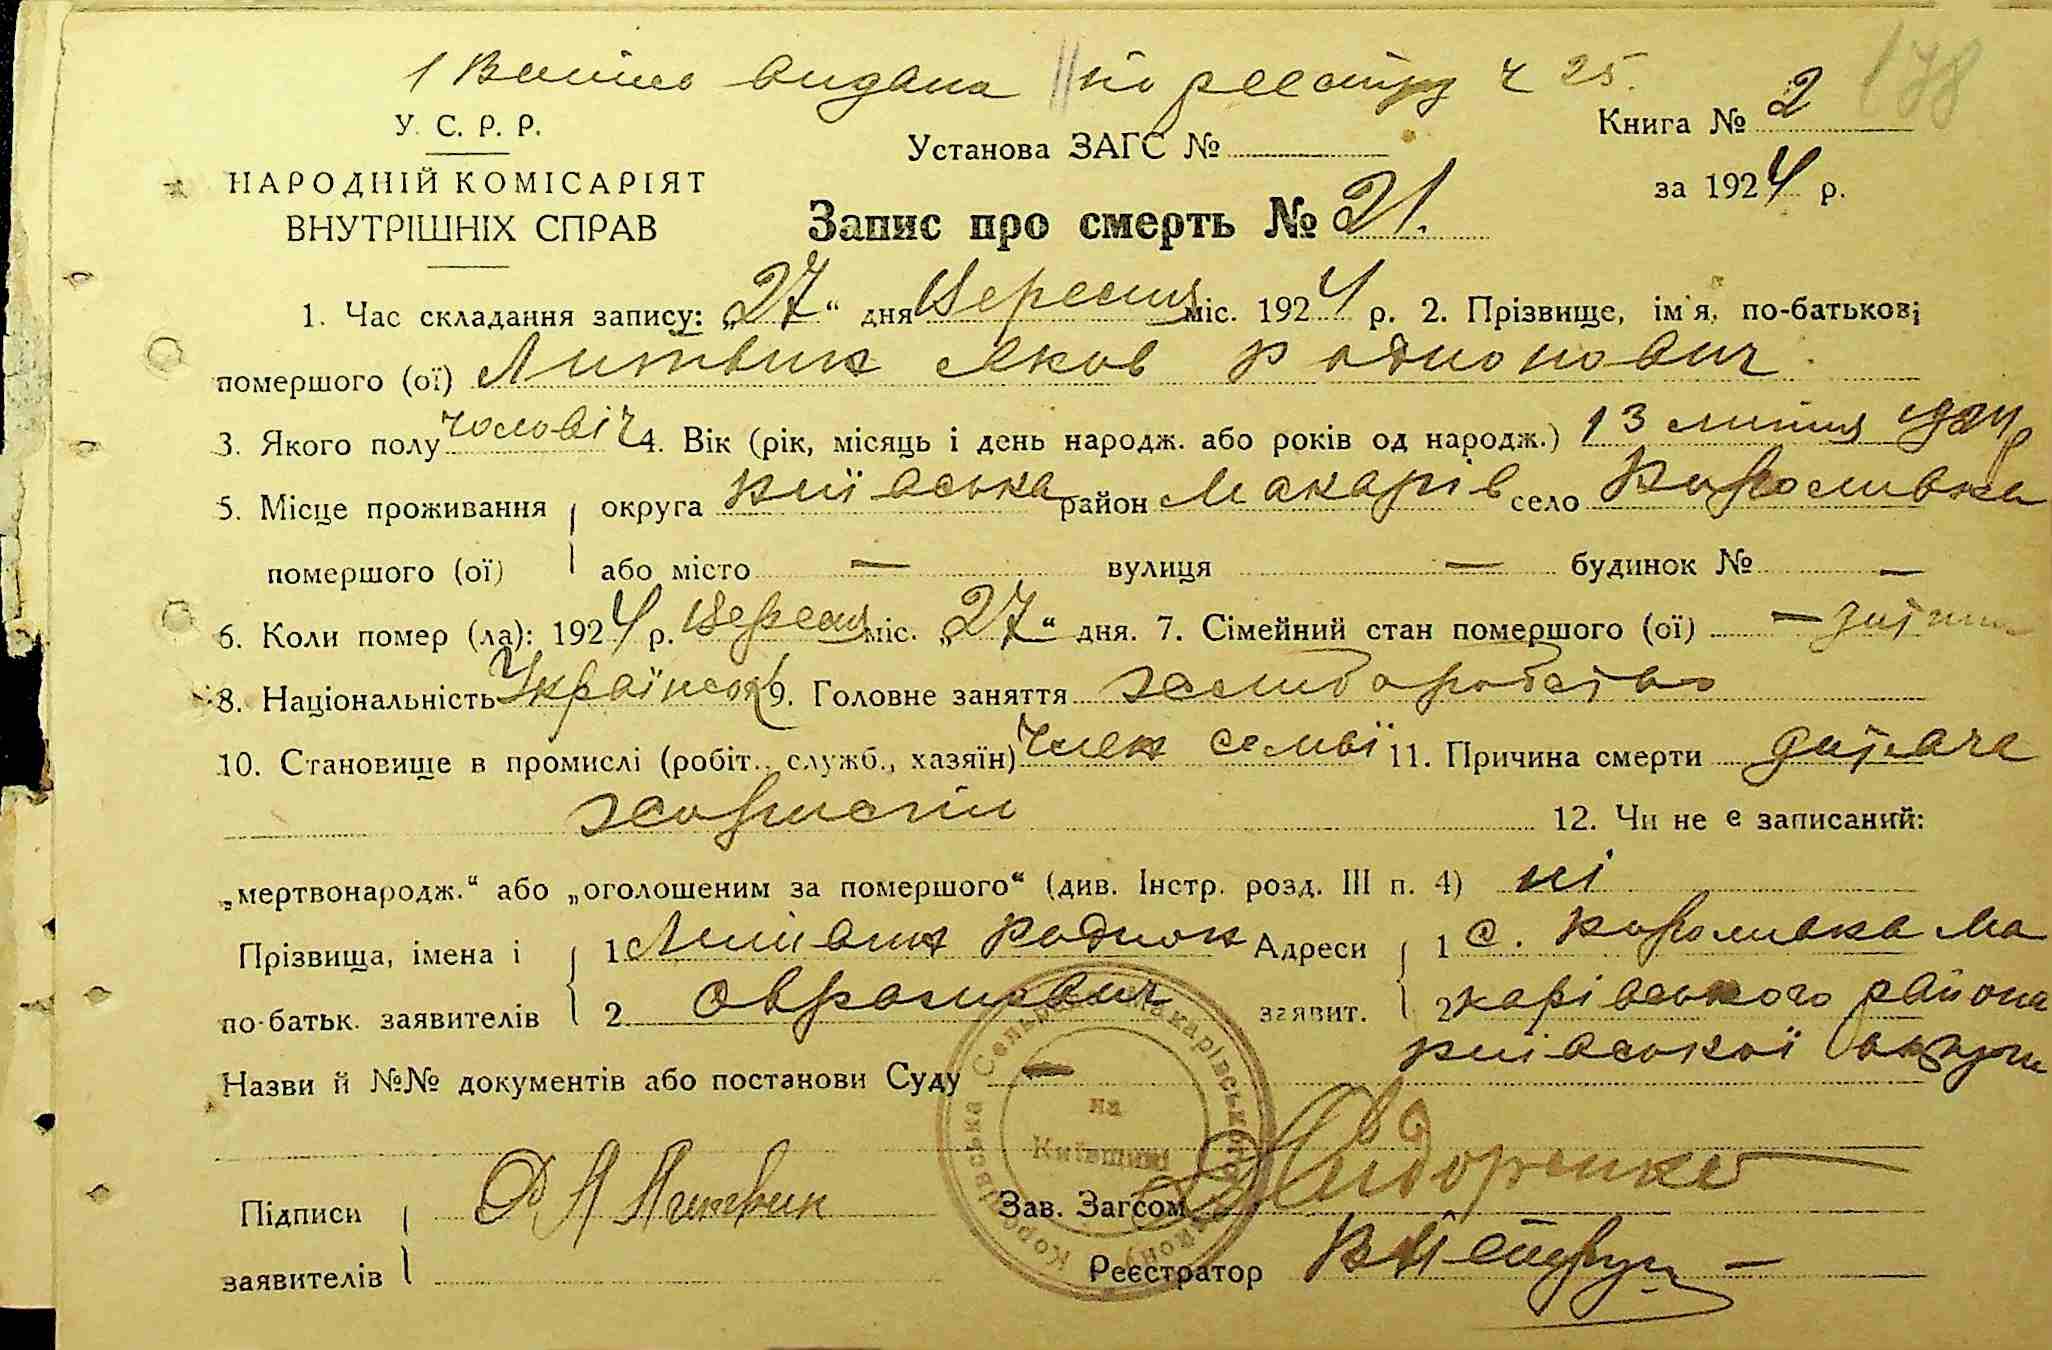 1 Випись видана по реєстру ч 25.
178
У. С. Р. Р.
НАРОДНІЙ КОМІСАРІЯТ
ВНУТРІШНІХ СПРАВ
Установа ЗАГС №
Книга № 2
за 1924 р.
Запис про смерть № 21.
1. Час складання запису: „27“ дня Вересня міс. 1924 р. 2. Прізвище, ім'я, по-батькові
помершого (ої) Литвин Яков Родионович
3. Якого полу чоловіч 4. Вік (рік, місяць і день народж. або років од народж.) 13 липня 1924 р
5. Місце проживання округа Київська район Макарів село Короливка
помершого (ої) або місто — вулиця — будинок № —
6. Коли помер (ла): 1924 р. Вересня міс. „27“ дня. 7. Сімейний стан помершого (ої) — дитина
8. Національність Українськ 9. Головне заняття хлиборобство
10. Становище в промислі (робіт., служб., хазяїн) член семьї 11. Причина смерти дитяча
12. Чи не є записаний:
„мертвонародж.“ або „оголошеним за помершого“ (див. Інстр. розд. III п. 4) ні
Прізвища, імена і 1 Литвин Родион Адреси 1 с. Короливка Ма
по-батьк. заявителів 2 Оврамович заявит. 2 карівського района
київської округи
Назви й №№ документів або постанови Суду —
Підписи Литвин Зав. Загсом Сидоренко
заявителів Реєстратор
Королівська Сельрада Макарівського району
на
Київщині